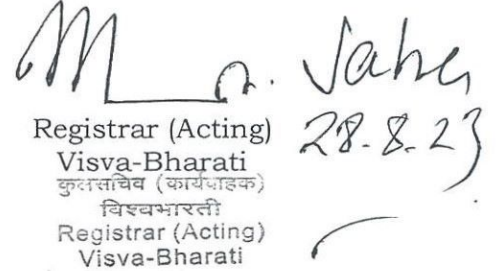 Saha
28.8.23
Registrar (Acting)
Visva-Bharati
कुलसचिव (कार्यवाहक)
विश्वभारती
Registrar (Acting)
Visva-Bharati